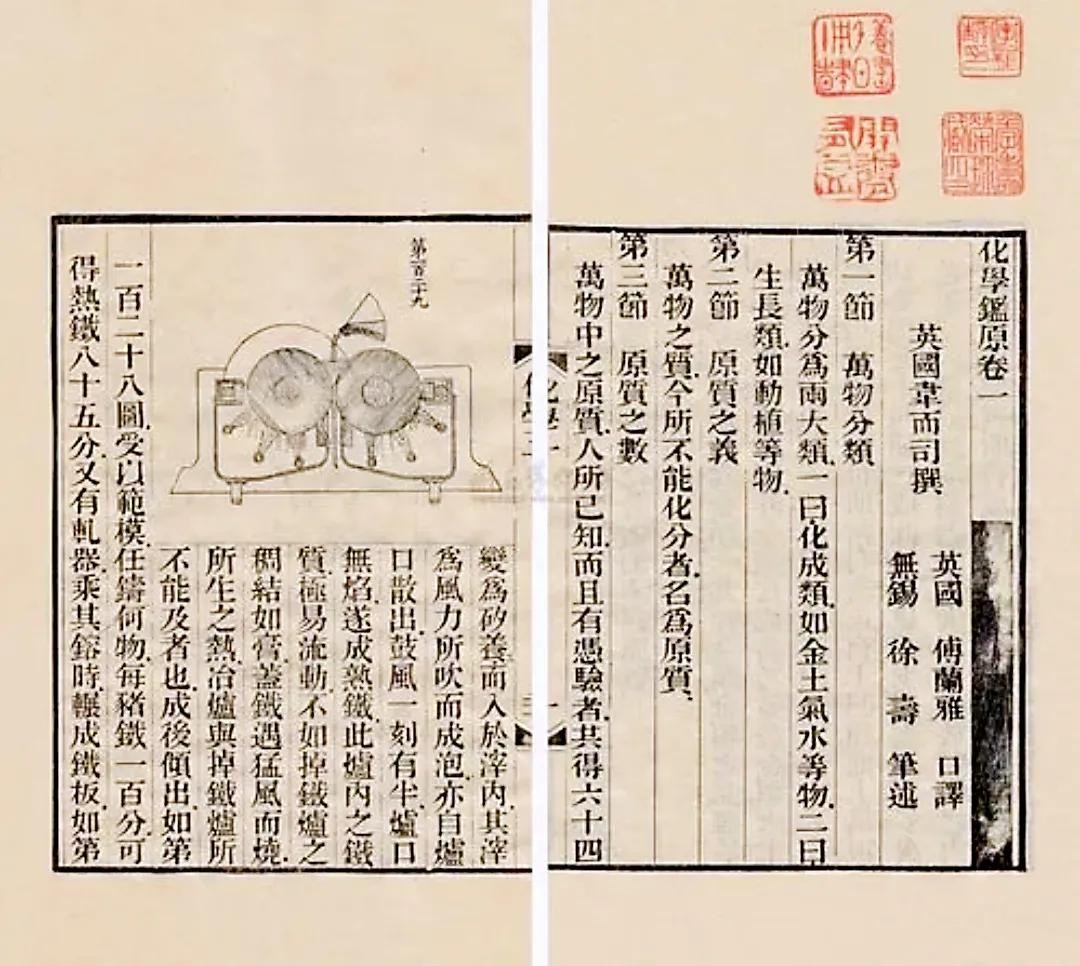 化學鑑原卷一
英國韋而司撰
英國 傅蘭雅 口譯
無錫 徐壽 筆述
第一節 萬物分類
萬物分爲兩大類一曰化成類如金土氣水等物二曰
生長類如動植等物
第二節 原質之義
萬物之質今所不能化分者名爲原質
第三節 原質之數
萬物中之原質人所已知而且有憑驗者共得六十四
變爲矽養而入於滓內其滓
爲風力所吹而成泡亦自爐
口散出鼓風一刻有半爐口
無焰遂成熟鐵此爐內之鐵
質極易流動不如掉鐵爐之
稠結如膏蓋鐵遇猛風而燒
所生之熱冶爐與掉鐵爐所
不能及者也成後傾出如第
第百二十九
一百二十八圖受以範模任鑄何物每豬鐵一百分可
得熱鐵八十五分又有軋器乘其鎔時輾成鐵板如第